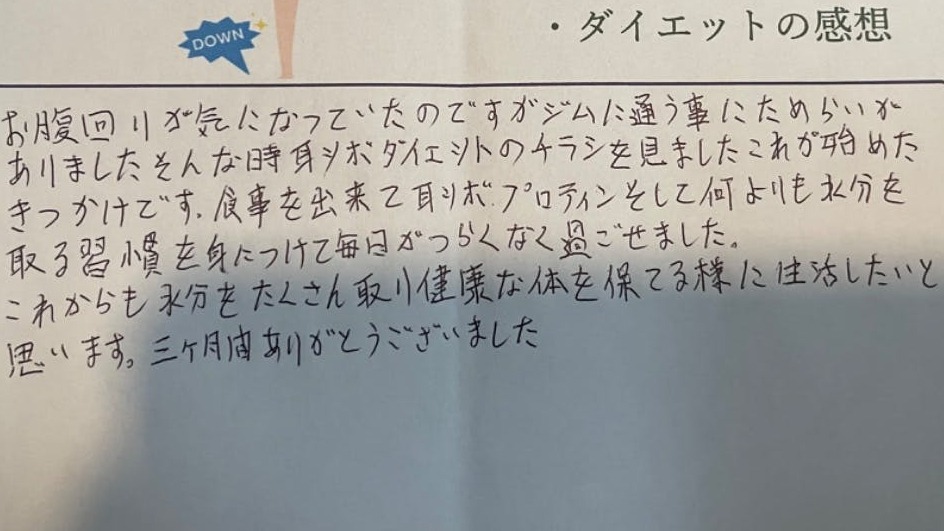 DOWN
・ダイエットの感想
お腹回りが気になっていたのですがジムに通う事にためらいが
ありましたそんな時耳ツボダイエットのチラシを見ましたこれが始めた
きっかけです。食事を出来て耳ツボ、プロティンそして何よりも水分を
取る習慣を身につけて毎日がつらくなく過ごせました。
これからも水分をたくさん取り健康な体を保てる様に生活したいと
思います。三ヶ月間ありがとうございました